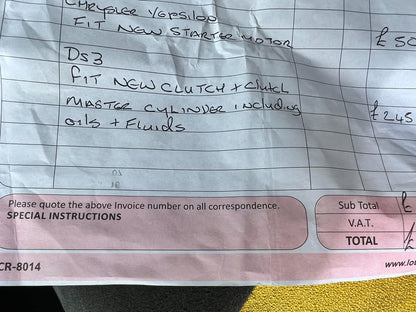 CHRYSLER YEPSILON
FIT NEW STARTER MOTOR £ 50
DS3
FIT NEW CLUTCH + CLUTCH
MASTER CYLINDER INCLUDING £245
OILS + FLUIDS
Please quote the above Invoice number on all correspondence.
SPECIAL INSTRUCTIONS
Sub Total £
V.A.T.
TOTAL £
CR-8014
www.lo